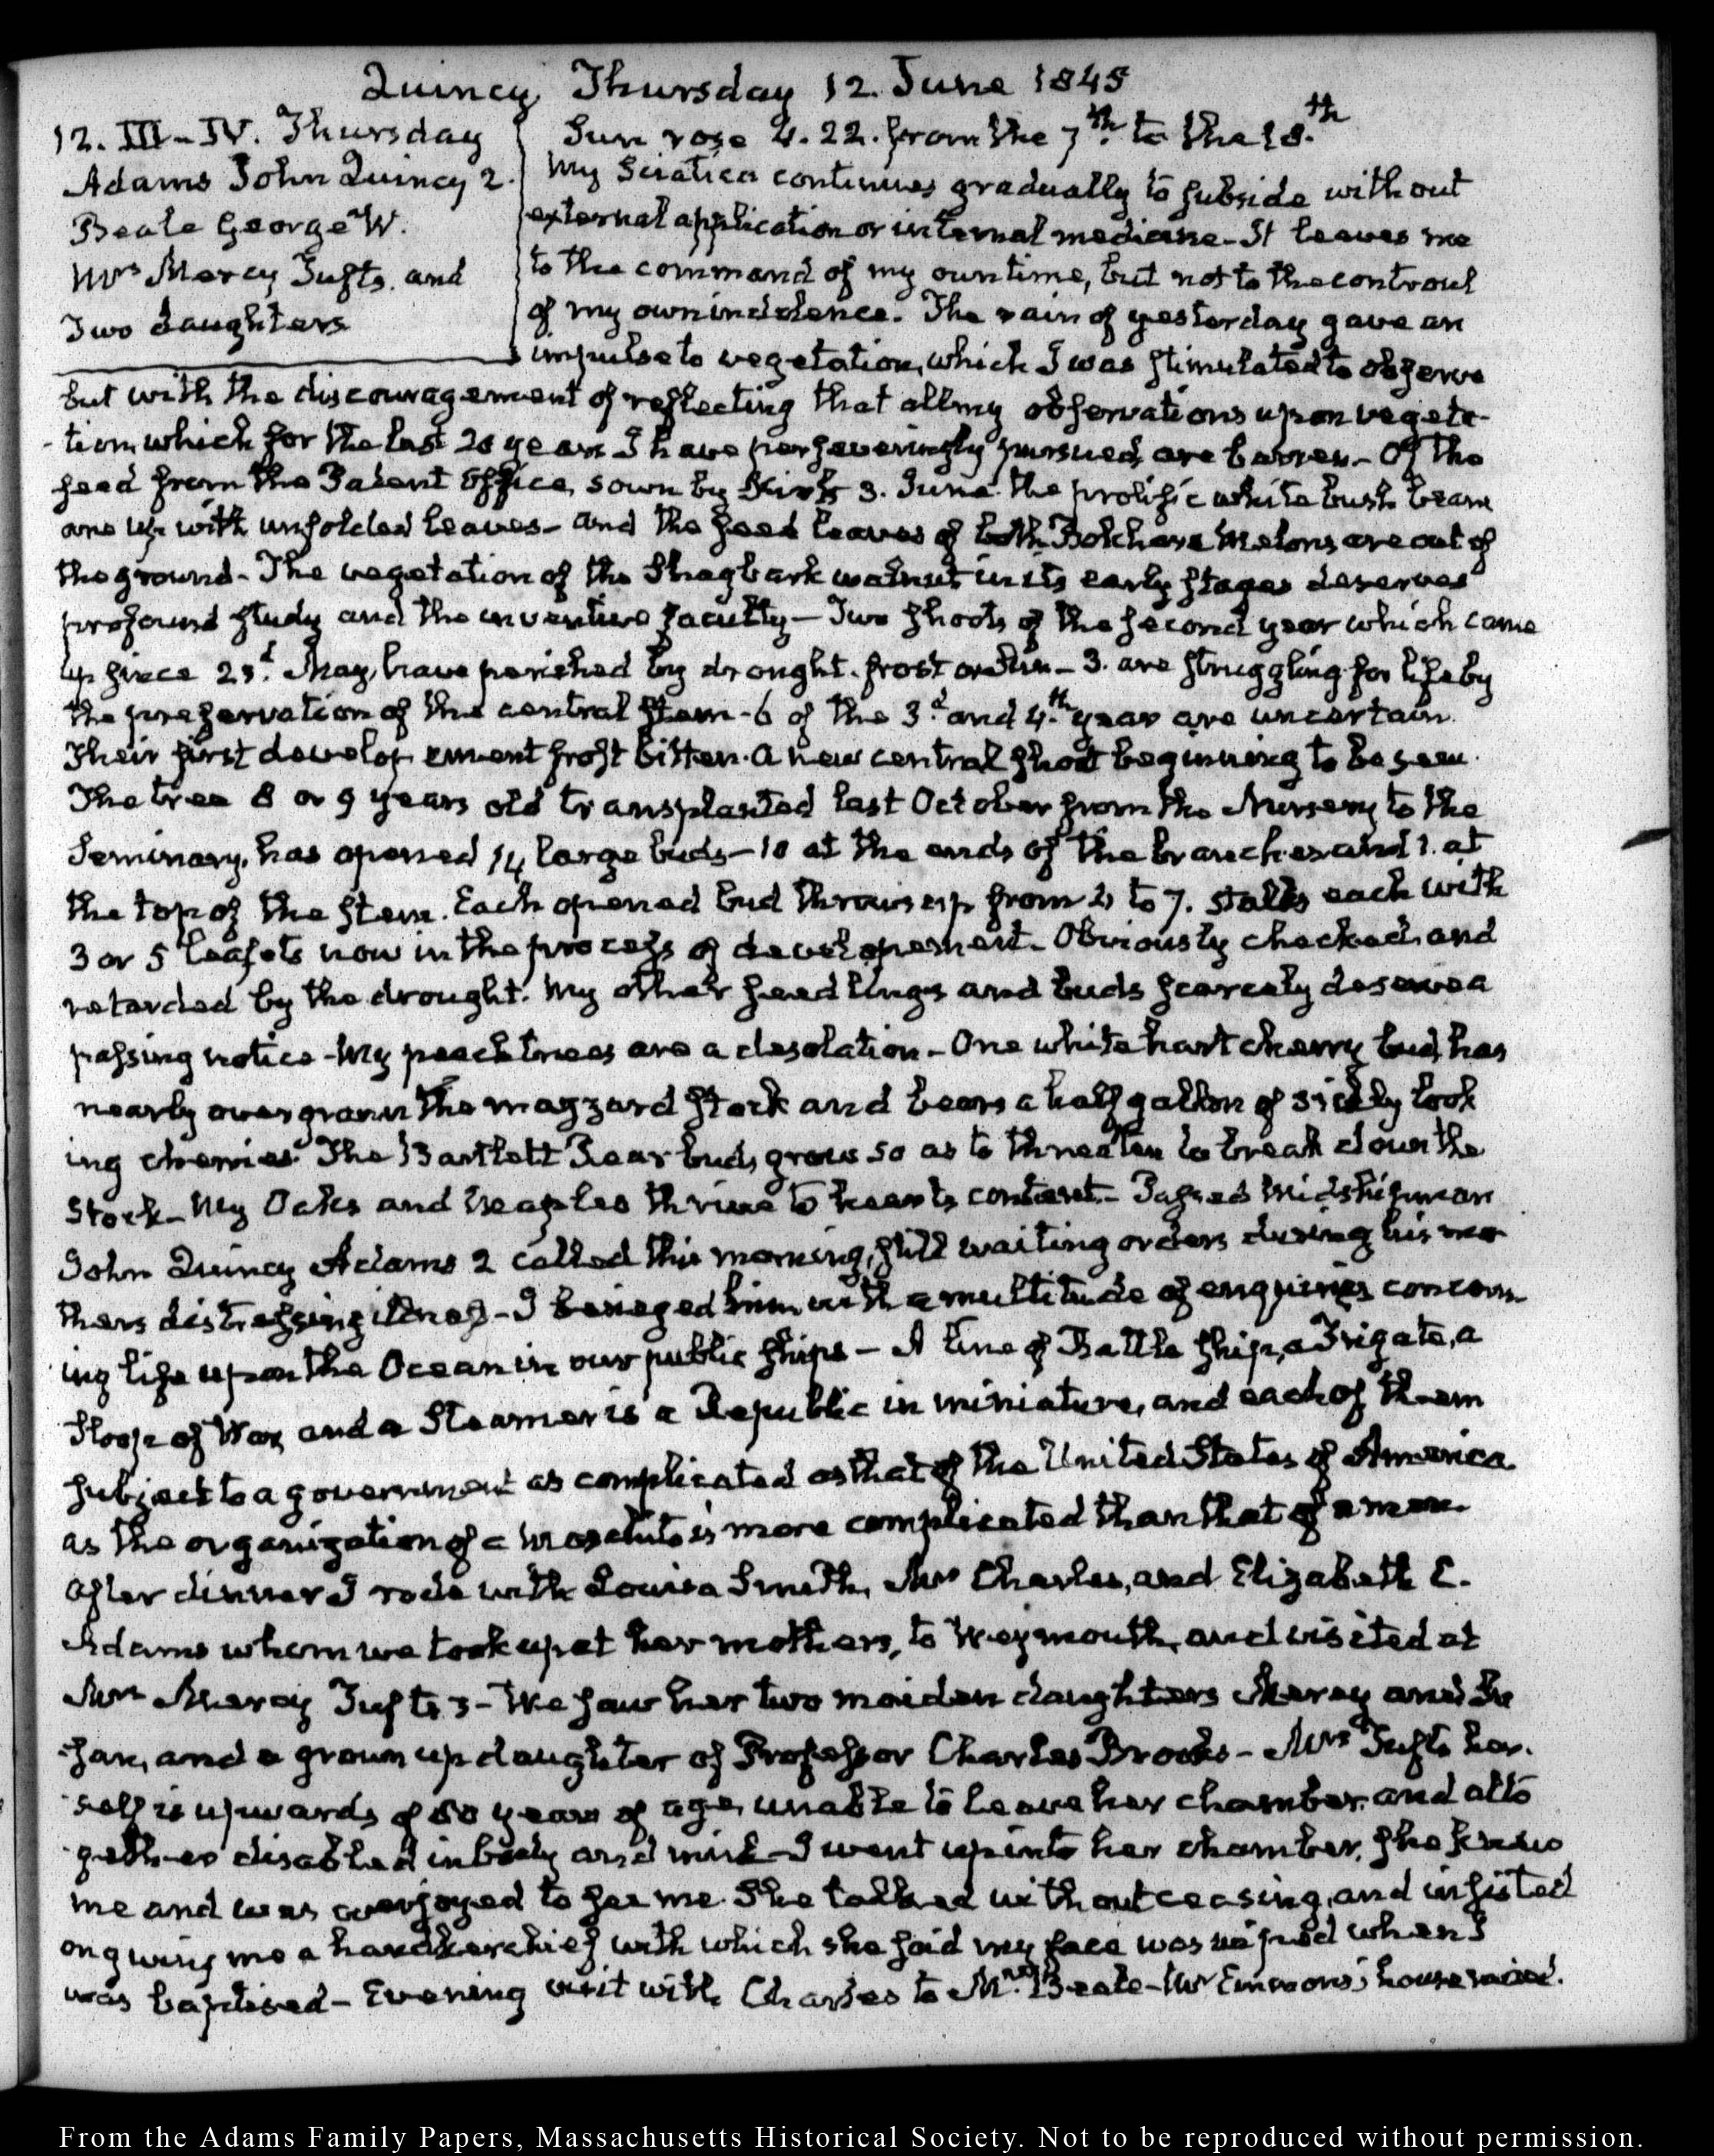 Quincy Thursday 12. June 1845
12. III-IV. Thursday
Adams John Quincy 2.
Beale George W.
Mrs Mercy Tufts. and
Two daughters
Sun rose 4. 22. from the 7th. to the 18.th
My Sciatica continues gradually to subside without
external application or internal medicine - It leaves me
to the command of my own time, but not to the controul
of my own indolence. The rain of yesterday gave an
impulse to vegetation, which I was stimulated to observe
but with the discouragement of reflecting that all my observations upon vegeta-
-tion, which for the last 20 years I have perseveringly pursued, are barren - Of the
seed from the Patent Office, sown by Kirk 3. June the prolific white bush bean
are up with unfolded leaves - and the seed leaves of both Melons are out of
the ground - The vegetation of the Shagbark walnut in its early stages deserves
profound study and the inventive faculty - Two shoots of the second year which came
up since 23.d May, have perished by drought. frost or Sun - 3. are struggling for life by
the preservation of the central stem - 6 of the 3.d and 4.th year are uncertain.
Their first developement frost bitten. A new central shoot beginning to be seen.
The tree 8 or 9 years old transplanted last October from the Nursery to the
Seminary, has opened 14 large buds - 10 at the ends of the branches and 1. at
the top of the stem. Each opened bud throws up from 4 to 7. stalks each with
3 or 5 leafets now in the process of developement - Obviously checked, and
retarded by the drought. My other seedlings and buds scarcely deserve a
passing notice - My peach trees are a desolation - One white hart cherry bud, has
nearly overgrown the mazzard stock and bears a half gallon of sickly look
ing cherries. The Bartlett Pear buds grow so as to threaten to break down the
stock - My Oaks and maples thrive to hearts content - Passed Midshipman
John Quincy Adams 2 called this morning, still waiting orders during his mo
thers distressing illness - I besieged him with a multitude of enquiries concern-
ing life upon the Ocean in our public ships - A Line of Battle ship, a Frigate, a
Sloop of War, and a Steamer is a Republic in miniature, and each of them
subject to a government as complicated as that of the United States of America
as the organization of a is more complicated than that of a man.
After dinner I rode with Louisa Smith, Mrs Charles, and Elizabeth C.
Adams whom we took up at her mothers, to Weymouth, and visited at
Mrs Mercy Tufts's - We saw her two maiden daughters Mercy and Su
san, and a grown up daughter of Professor Charles Brooks - Mrs Tufts her-
self is upwards of 80 years of age, unable to leave her chamber, and alto
gether disabled in body and mind - I went up into her chamber. She knew
me and was overjoyed to see me. She talked without ceasing, and insisted
on giving me a handkerchief with which she said my face was wiped when I
was baptised - Evening visit with Charles to Mr. Beale - Mr Emmons's house raised.
From the Adams Family Papers, Massachusetts Historical Society. Not to be reproduced without permission.